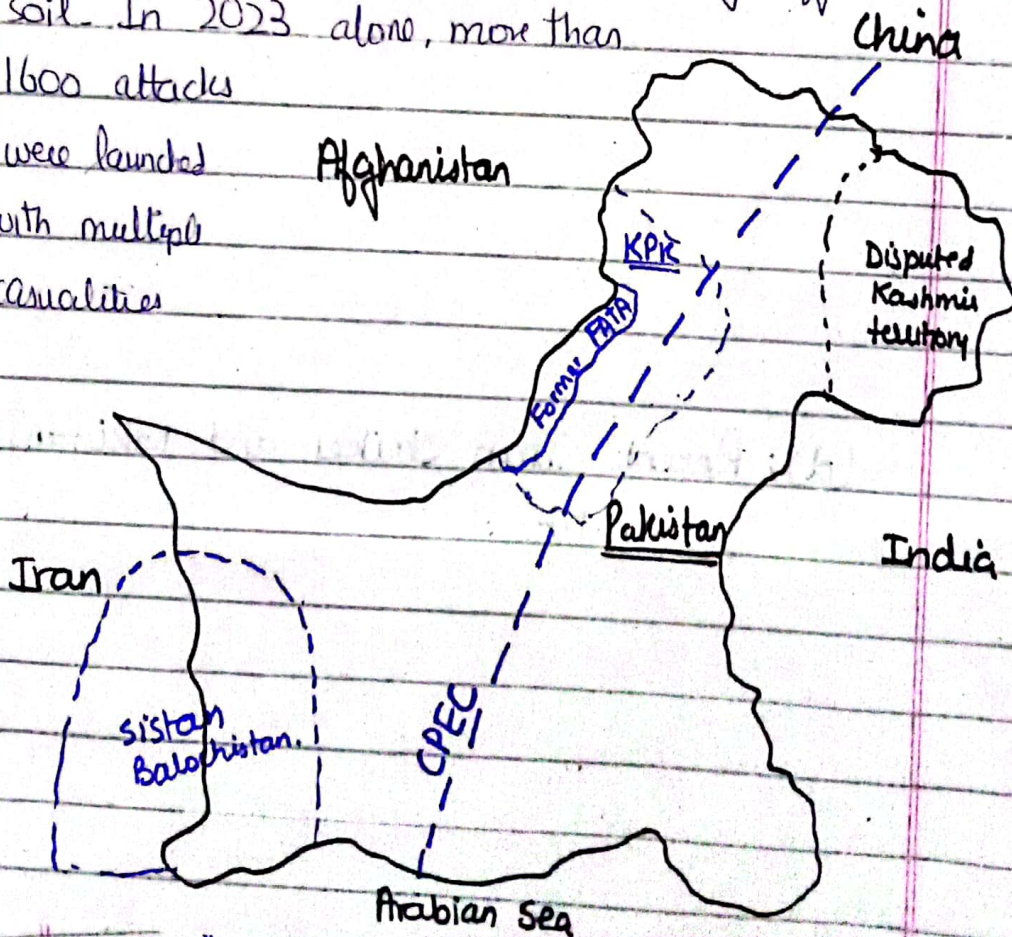 soil. In 2023 alone, more than
1600 attacks
were launched
with multiple
casualities
China
Afghanistan
KPK
Former FATA
Disputed
Kashmir
territory
Pakistan
India
Iran
Sistan
Balochistan.
CPEC
Arabian Sea